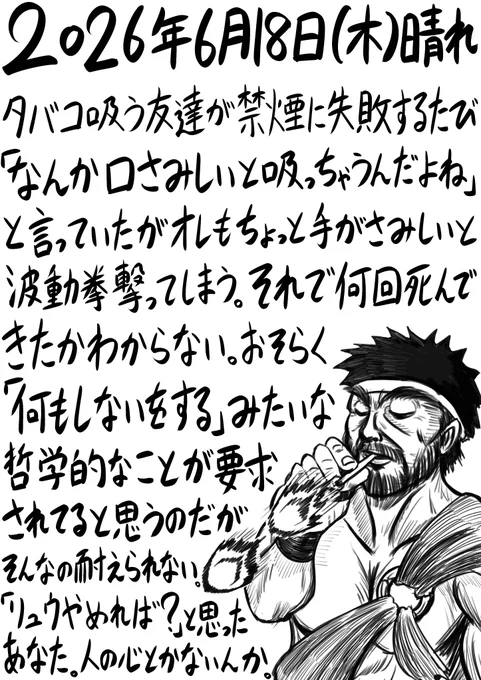 2026年6月18日(木)晴れ
タバコ吸う友達が禁煙に失敗するたび
「なんか口さみしいと吸っちゃうんだよね」
と言っていたがオレもちょっと手がさみしいと
波動拳撃ってしまう。それで何回死んで
きたかわからない。おそらく
「何もしないをする」みたいな
哲学的なことが要求
されてると思うのだが
そんなの耐えられない。
「リュウやめれば?」と思った
あなた。人の心とかないんか。